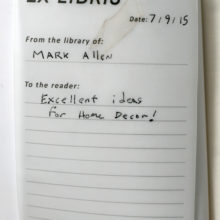 EX LIBRIS
Date: 7/9/15
From the library of:
MARK Allen
To the reader:
Excellent ideas
for Home Decor!